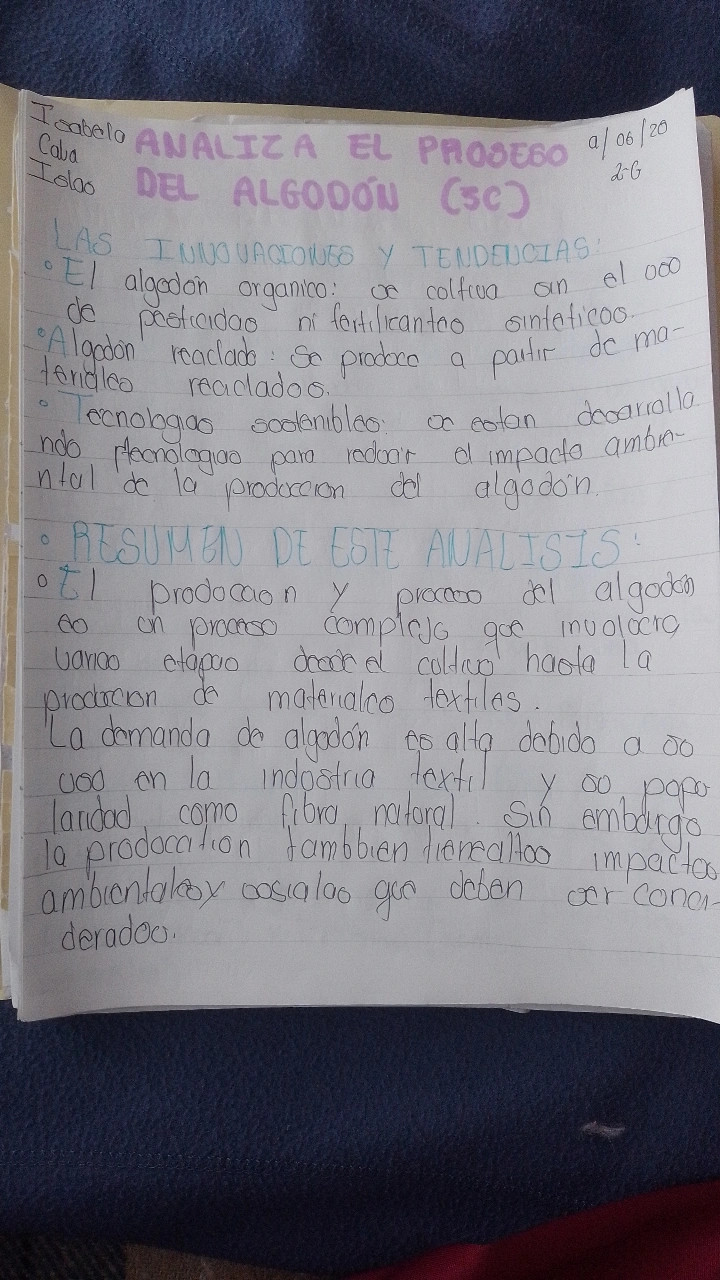 Isabela
Caba
Islas
ANALIZA EL PROSESO
DEL ALGODÓN (3C)
a/06/20
2-G
LAS INNOVACIONES Y TENDENCIAS:
• El algodón organico: se coltiva sin el uso
de pesticidas ni fertilicantes sinteticos.
• Algodón reciclado: Se produce a partir de ma-
teriales reciclados.
• Tecnologas sostenibles: se estan desarrolla
ndo tecnologias para reducir el impacto ambie-
ntal de la produccion del algodón.
• RESUMEN DE ESTE ANALISIS:
• El producaon y proceso del algodón
es un proceso complejo que involucra
varios etapas desde el coltivo hasta la
produccion de materiales textiles.
La demanda de algodón es alta debido a su
uso en la industria textil y su popu
laridad como fibra natural. Sin embargo
la produccition tambbien tienealtos impactos
ambientales y cosialas que deben ser conci-
derados.